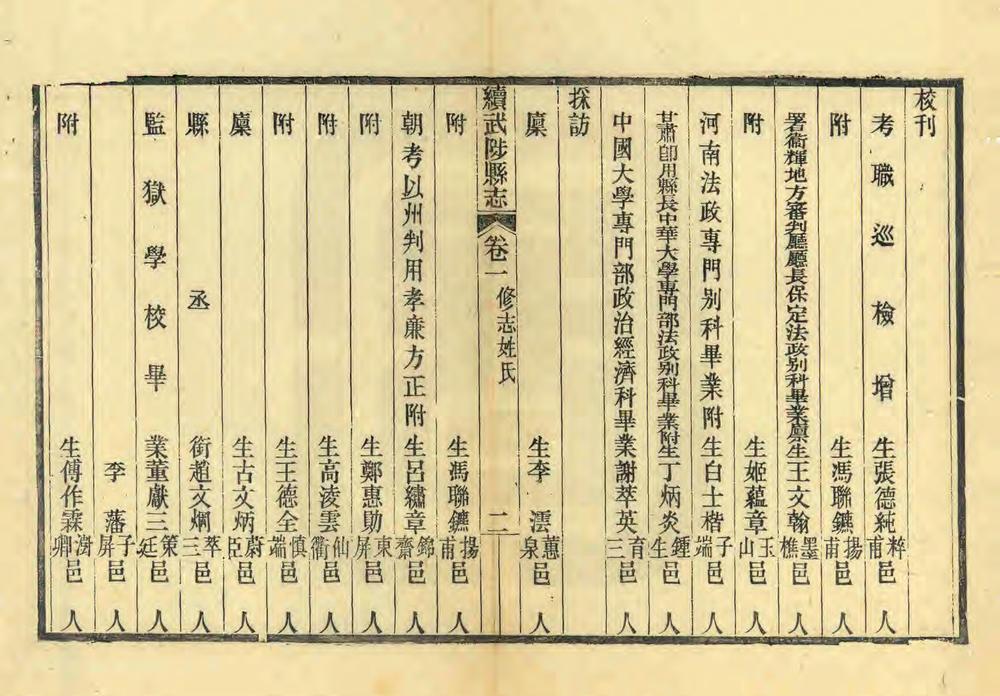 校刊
考職巡檢增生張德純粹甫邑人
附生馮聯鑣揚甫邑人
署衛輝地方審判廳廳長保定法政別科畢業廩生王文翰墨樵邑人
附生姬蘊章玉山邑人
河南法政專門別科畢業附生白士楷子端邑人
甘肅即用縣長中華大學專門部法政別科畢業附生丁炳炎鍾生邑人
中國大學專門部政治經濟科畢業謝萃英育三邑人
採訪
廩生李澐蕙泉邑人
續武陟縣志 卷一 修志姓氏 二
附生馮聯鑣揚甫邑人
朝考以州判用孝廉方正附生呂繡章錦齋邑人
附生鄭惠勛東屏邑人
附生高淩雲仙衢邑人
附生王德全慎端邑人
廩生古文炳蔚臣邑人
縣丞銜趙文炯萃三邑人
監獄學校畢業董獻三策廷邑人
李藩子屏邑人
附生傅作霖澍卿邑人